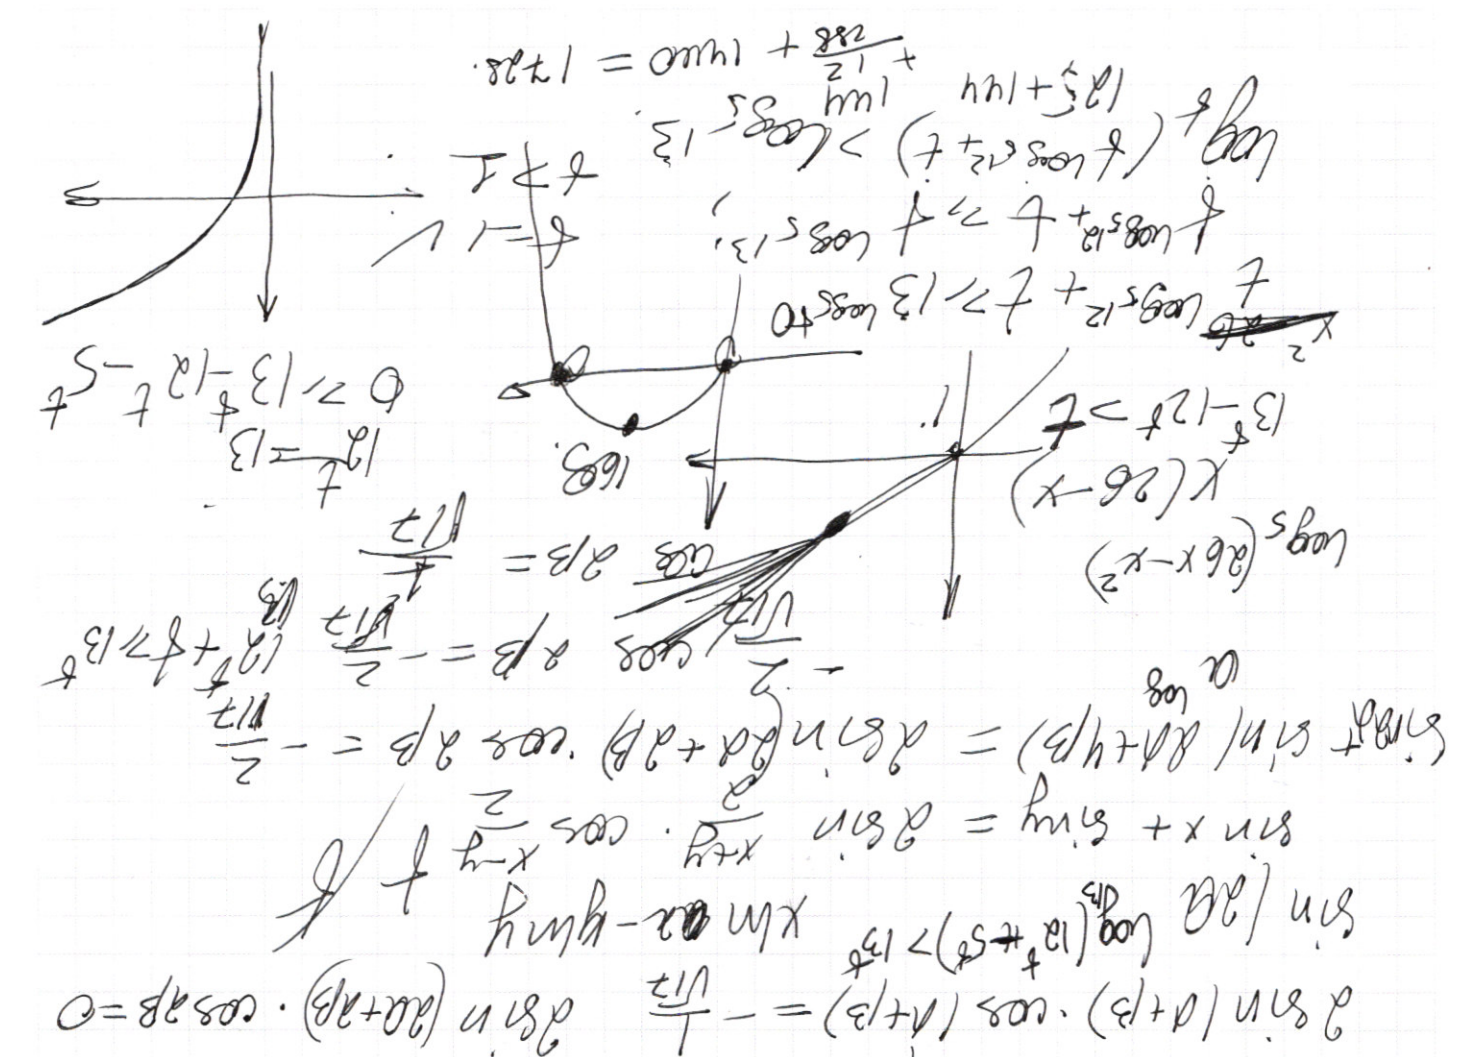 2sin(α+β)·cos(α+β) = -1/√17   2sin(2α+2β)·cos2β=0
sin(2α   log₁₃(12^t+5^t)>13^t   xlnx-ylny
sin x + sin y = 2sin (x+y)/2 · cos (x-y)/2   t
sin2α+sin(2α+4β) = 2sin(2α+2β)·cos2β = -2/√17
a^log
-2/√17   cos 2β = -2/√17   12^t+t≥13^t
cos 2β = 1/√17
log₅(26x-x²)
x(26-x)   169.   12^t=13
13^t-12^t>t   0≥13^t-12^t-5^t
t^log₅12 + t ≥ 13^log₅t
t^log₅12 + t ≥ t^log₅13;   t=1 √
log_t(t^log₅12+t) > log₅13   t>1
12⁵+144   144
+12
288 + 1440 = 1728.